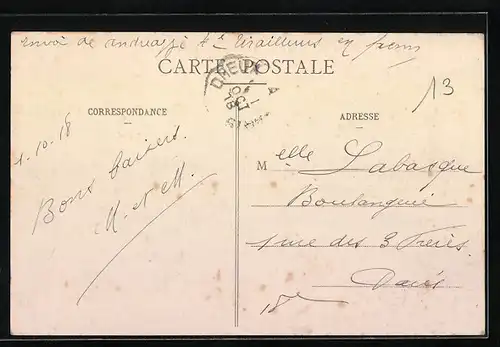 envoi de andrazzé 4e Tirailleurs en
CARTE POSTALE
DREUX
13
CORRESPONDANCE
ADRESSE
1-10-18
Bons baisers.
M. et M.
Melle Labasque
Boulangerie
1 rue des 3 Frères
Paris
18e